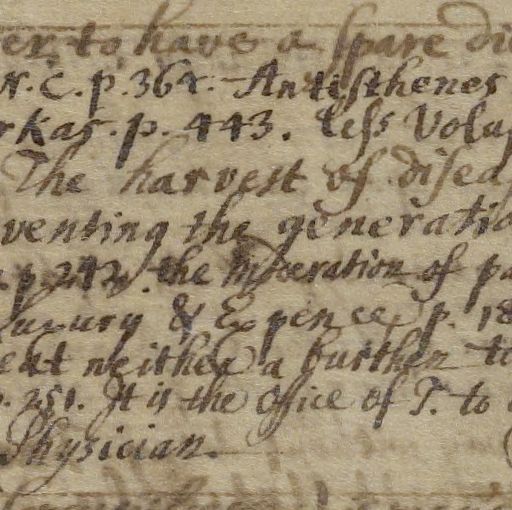 er to have a spare die
r. C. p. 364. Antisthenes
rkas. p. 443. less Volup
The harvest of diseas
venting the generatio
p. 242. the moderation of pa
Luxury & Expence, p. 18
ext neither a burthen to
p. 251. It is the Office of T. to
Physician.